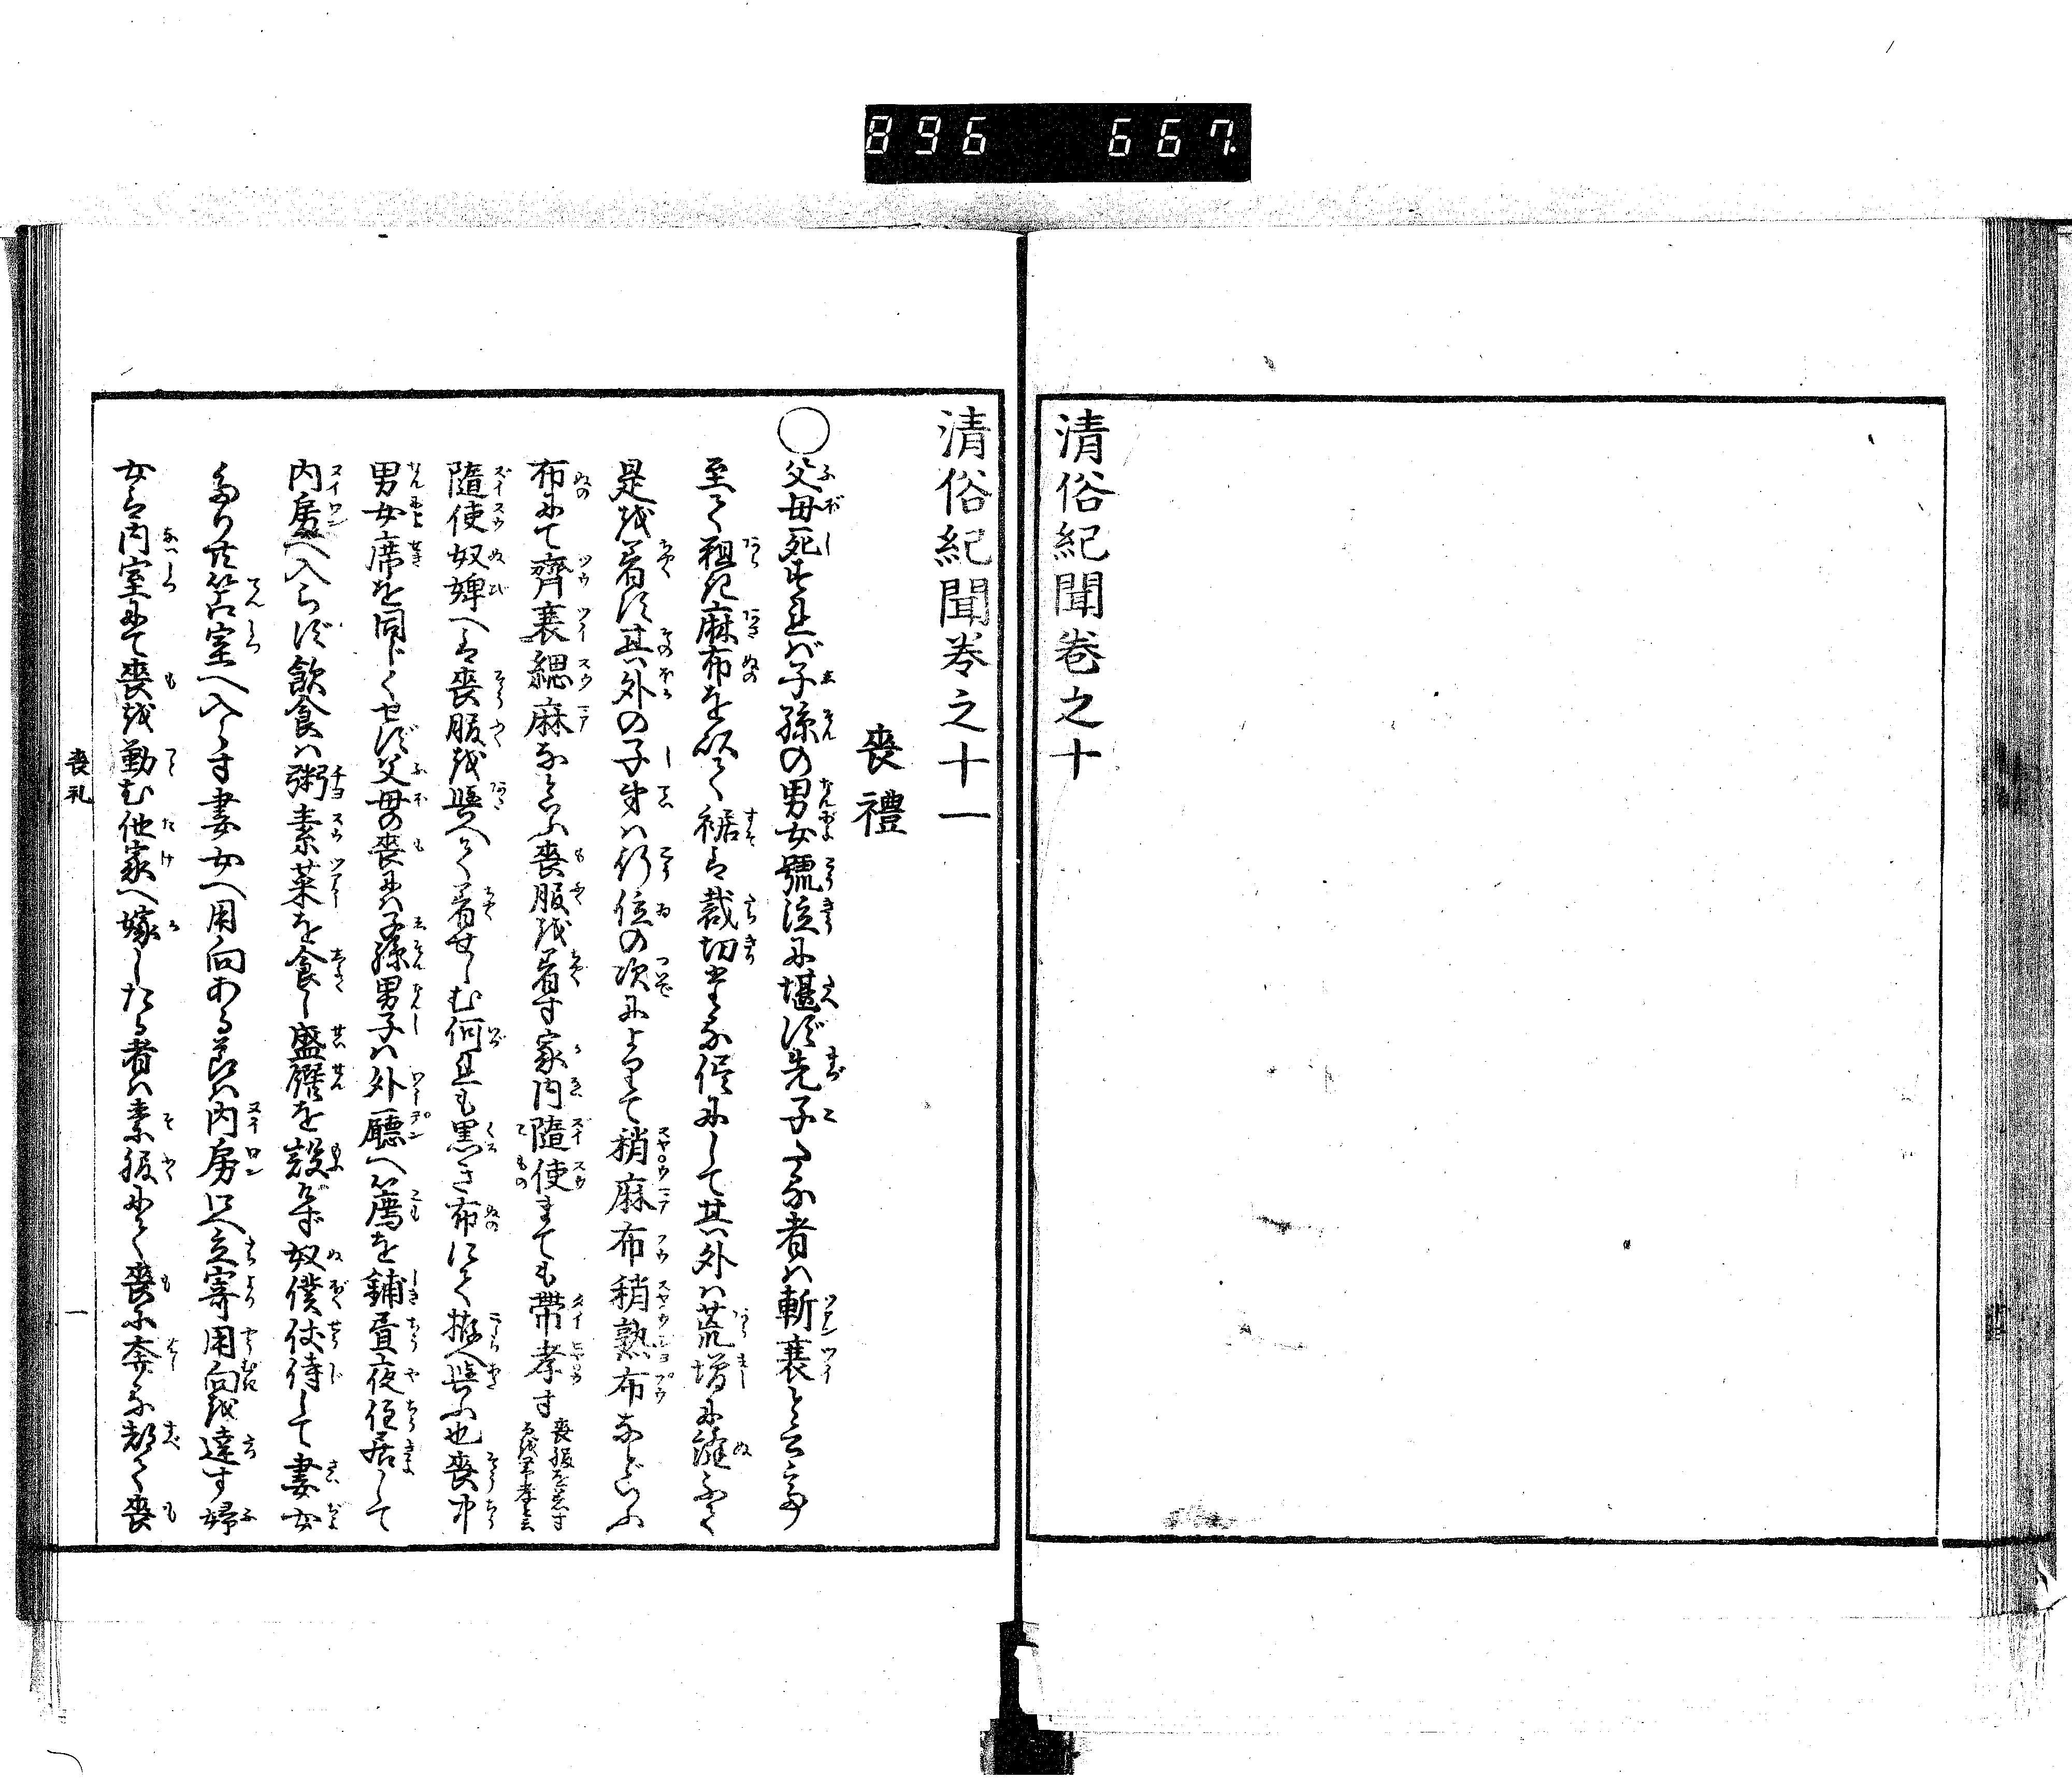 896 667
清俗紀聞卷之十
清俗紀聞卷之十一
喪禮
◯父母死すれば子孫の男女號泣に堪ず先子たる者は斬衰とて
至て粗き麻布を以て裾は裁切たる侭にして其外は荒増に縫ふて
是を着す其外の子弟は行位の次によりて稍麻布稍熟布などいふ
布にて齊衰緦麻などいふ喪服を着す家内隨使までも帶孝す 喪服を着す
るを帶孝と云
隨使奴婢へは喪服を與へて着せしむ何れも黒き布にて拵へ與ふ也喪中
男女席を同じくせず父母の喪には子孫男子は外廳へ薦を鋪晝夜住居して
内房へ入らず飲食は粥素菜を食し盛饌を設けず奴僕伏侍して妻女
たり共苫室へ入らす妻女へ用向ある節は内房口へ立寄用向を達す婦
女は内室にて喪を勤む他家へ嫁したる者は素服にて喪に奔る都て喪
喪礼
一